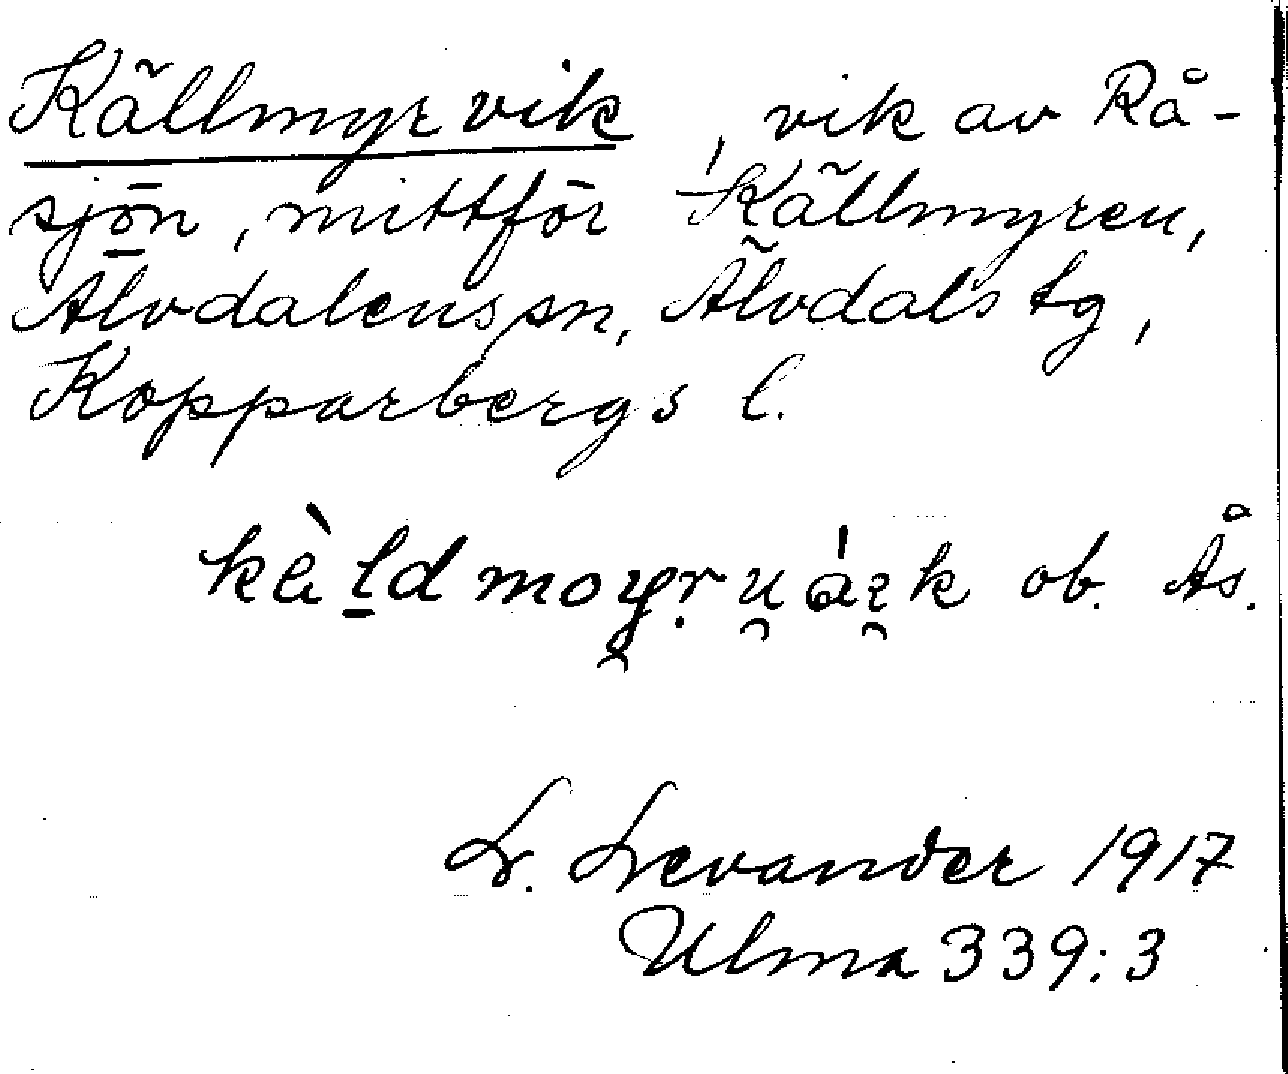 Källmyrvik, vik av Rå-
sjön, mittför Källmyren,
Älvdalens sn, Älvdals tg,
Kopparbergs l.
kèl̠dmoy̯ṛu̯ái̯k ob. Ås.
L. Levander 1917
Ulma 339:3